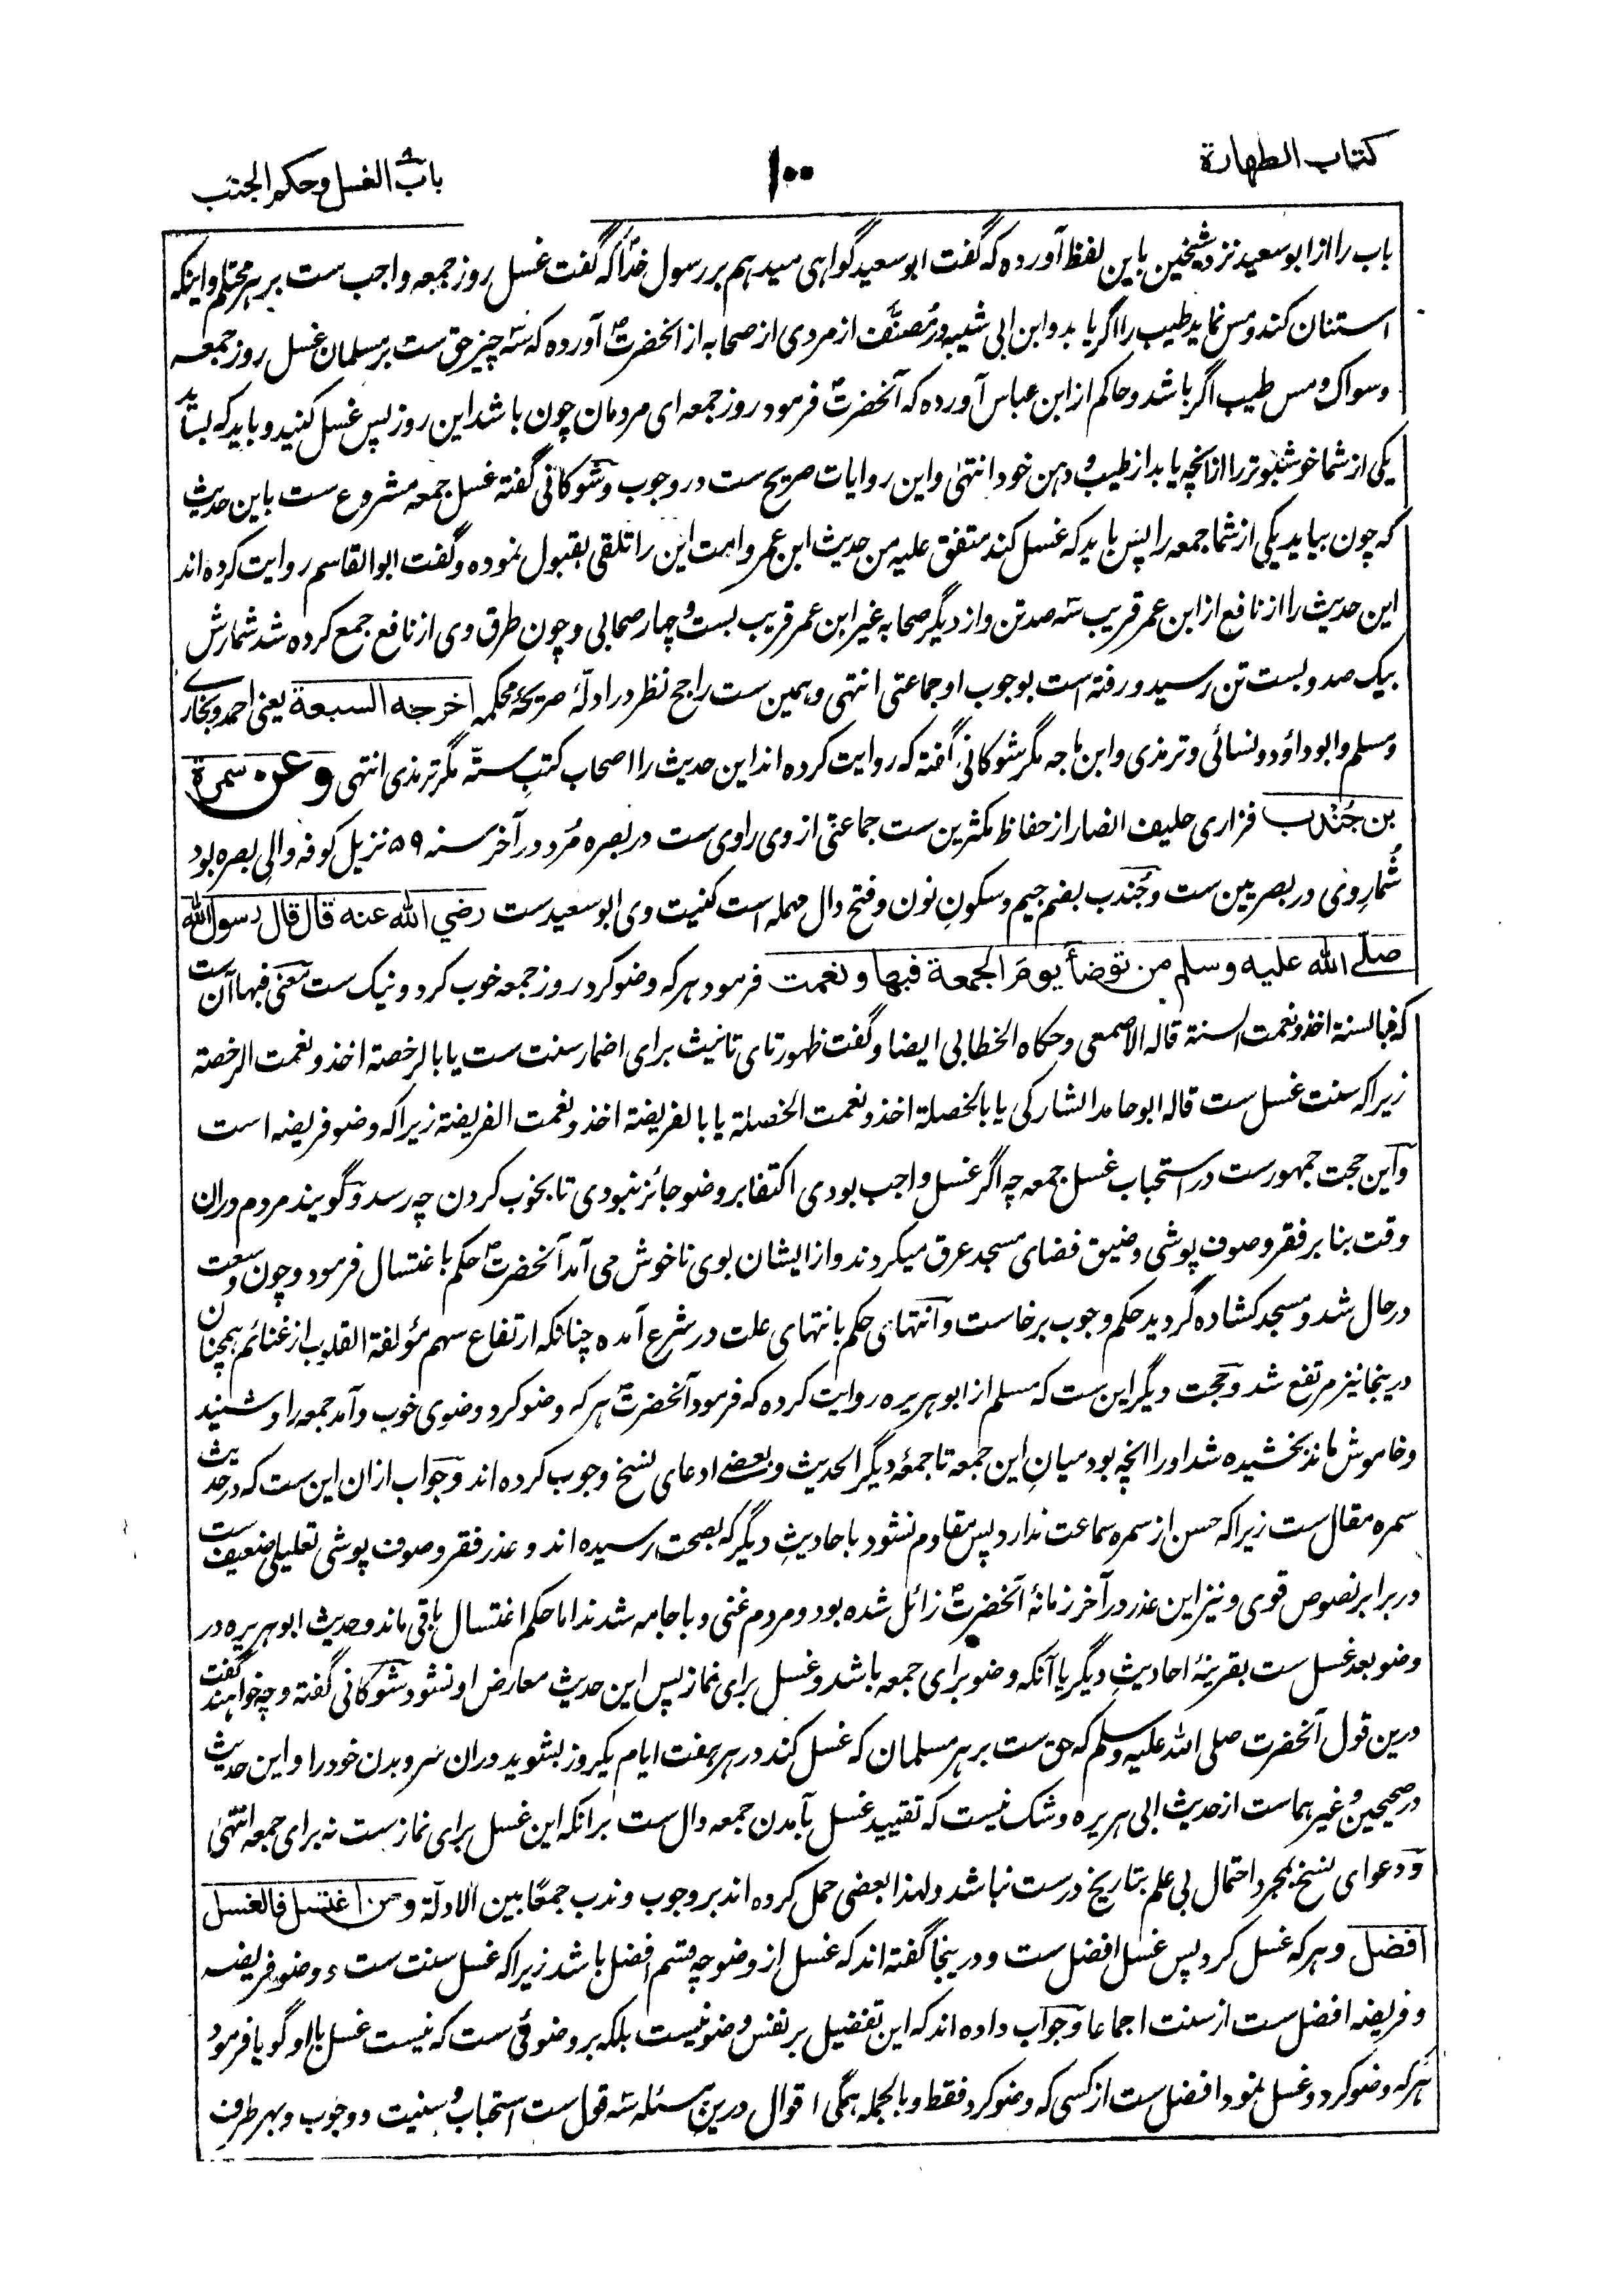 کتاب الطهارة
۱۰۰
باب الغسل وحکم الجنب
باب را از ابو سعید نزد شیخین باین لفظ آورده که گفت ابو سعید گواهی میدهم بر رسول خدا که گفت غسل روز جمعه واجب ست بر هر محتلم و اینکه
استنان کند و مس نماید طیب را اگر یابد و ابن ابی شیبه در مُصنَّف از مردی از صحابه از آنحضرت ؐ آورده که سه چیز حق ست بر مسلمان غسل روز جمعه
و سواک و مس طیب اگر باشد و حاکم از ابن عباس آورده که آنحضرت ؐ فرمود روز جمعه ای مردمان چون باشد این روز پس غسل کنید و باید که بساید
یکی از شما خوشبوتر را از آنچه یابد از طیب و دهن خود انتهی و این روایات صریح ست در وجوب و شوکانی گفته غسل جمعه مشروع ست باین حدیث
که چون بیاید یکی از شما جمعه را پس باید که غسل کند متفق علیه من حدیث ابن عمر و امت این را تلقی بقبول نموده و گفت ابو القاسم روایت کرده اند
این حدیث را از نافع از ابن عمر قریب سه صد تن و از دیگر صحابه غیر ابن عمر قریب بست و چهار صحابی و چون طرق وی از نافع جمع کرده شد شمارش
بیک صد و بست تن رسید و رفته است بوجوب او جماعتی انتهی و همین ست راجح نظر در ادلّهٔ صریحهٔ محکمه اخرجه السبعة یعنی احمد و بخاری
و مسلم و ابو داؤد و نسائی و ترمذی و ابن ماجه مگر شوکانی گفته که روایت کرده اند این حدیث را اصحاب کتب ستّه مگر ترمذی انتهی وعن سمرة
بن جُنْدُب فزاری حلیف انصار از حفاظ مکثرین ست جماعتی از وی راوی ست در بصره مُرد در آخر سنه ۵۹ نزیل کوفه و والی بصره بود
شُمارِ وی در بصریین ست و جُندب بضم جیم و سکونِ نون و فتح دال مهمله است کنیت وی ابو سعید ست رضي الله عنه قال قال رسول الله
صلّے الله علیه وسلم من توضأ یومَ الجمعة فبها ونعمت فرمود هر که وضو کرد روز جمعه خوب کرد و نیک ست معنی فبها آن ست
که فبالسنة اخذ و نعمت السنة قاله الاصمعی و حکاه الخطابی ایضا و گفت ظهور تای تانیث برای اضمار سنت ست یا بالرخصة اخذ و نعمت الرخصة
زیرا که سنت غسل ست قاله ابو حامد الشارکی یا بالخصلة اخذ و نعمت الخصلة یا بالفریضة اخذ و نعمت الفریضة زیرا که وضو فریضه است
و این حجت جمهور ست در استحباب غسل جمعه چه اگر غسل واجب بودی اکتفا بر وضو جائز نبودی تا بخوب کردن چه رسد و گویند مردم دران
وقت بنا بر فقر و صوف پوشی و ضیق فضای مسجد عرق میکردند و از ایشان بوی ناخوش می آمد آنحضرت ؐ حکم باغتسال فرمود و چون وسعت
در حال شد و مسجد کشاده گردید حکم وجوب برخاست و انتهای حکم بانتهای علت در شرع آمده چنانکه ارتفاع سهم مؤلفة القلوب از غنائم همچنان
درینجا نیز مرتفع شد و حجت دیگر این ست که مسلم از ابو هریره روایت کرده که فرمود آنحضرت ؐ هر که وضو کرد وضوی خوب و آمد جمعه را و شنید
و خاموش ماند بخشیده شد او را انچه بود میانِ این جمعه تا جمعهٔ دیگر الحدیث و بعضے ادعای نسخ وجوب کرده اند و جواب ازان این ست که در حدیث
سمره مقال ست زیرا که حسن از سمره سماعت ندارد پس مقاوم نشود با حادیثِ دیگر که بصحت رسیده اند و عذر فقر و صوف پوشی تعلیلی ضعیف ست
در برابر نصوص قوی و نیز این عذر در آخر زمانهٔ آنحضرت ؐ زائل شده بود و مردم غنی و با جامه شدند اما حکم اغتسال باقی ماند و حدیث ابو هریره در
وضو بعد غسل ست بقرینهٔ احادیثِ دیگر یا آنکه وضو برای جمعه باشد و غسل برای نماز پس این حدیث معارض او نشود شوکانی گفته و چه خواهند گفت
درین قول آنحضرت صلی الله علیه وسلم که حق ست بر هر مسلمان که غسل کند در هر هفت ایام یکروز بشوید دران سر و بدن خود را و این حدیث
در صحیحین و غیرهما ست از حدیث ابی هریره و شک نیست که تقیید غسل بآمدن جمعه دال ست برانکه این غسل برای نماز ست نه برای جمعه انتهی
و دعوای نسخ بمجرد احتمال بی علم بتاریخ درست نباشد و لهذا بعضی حمل کرده اند بر وجوب و ندب جمعًا بین الادلّة ومن اغتسل فالغسل
افضل و هر که غسل کرد پس غسل افضل ست و درینجا گفته اند که غسل از وضو چه قسم افضل باشد زیرا که غسل سنت ست و وضو فریضه
و فریضه افضل ست از سنت اجماعا و جواب داده اند که این تفضیل بر نفس وضو نیست بلکه بر وضوئی ست که نیست غسل با او گویا فرمود
هر که وضو کرد و غسل نمود افضل ست از کسی که وضو کرد فقط و بالجمله همگی اقوال درین مسئله سه قول ست استحباب و سنیت و وجوب و بهر طرف